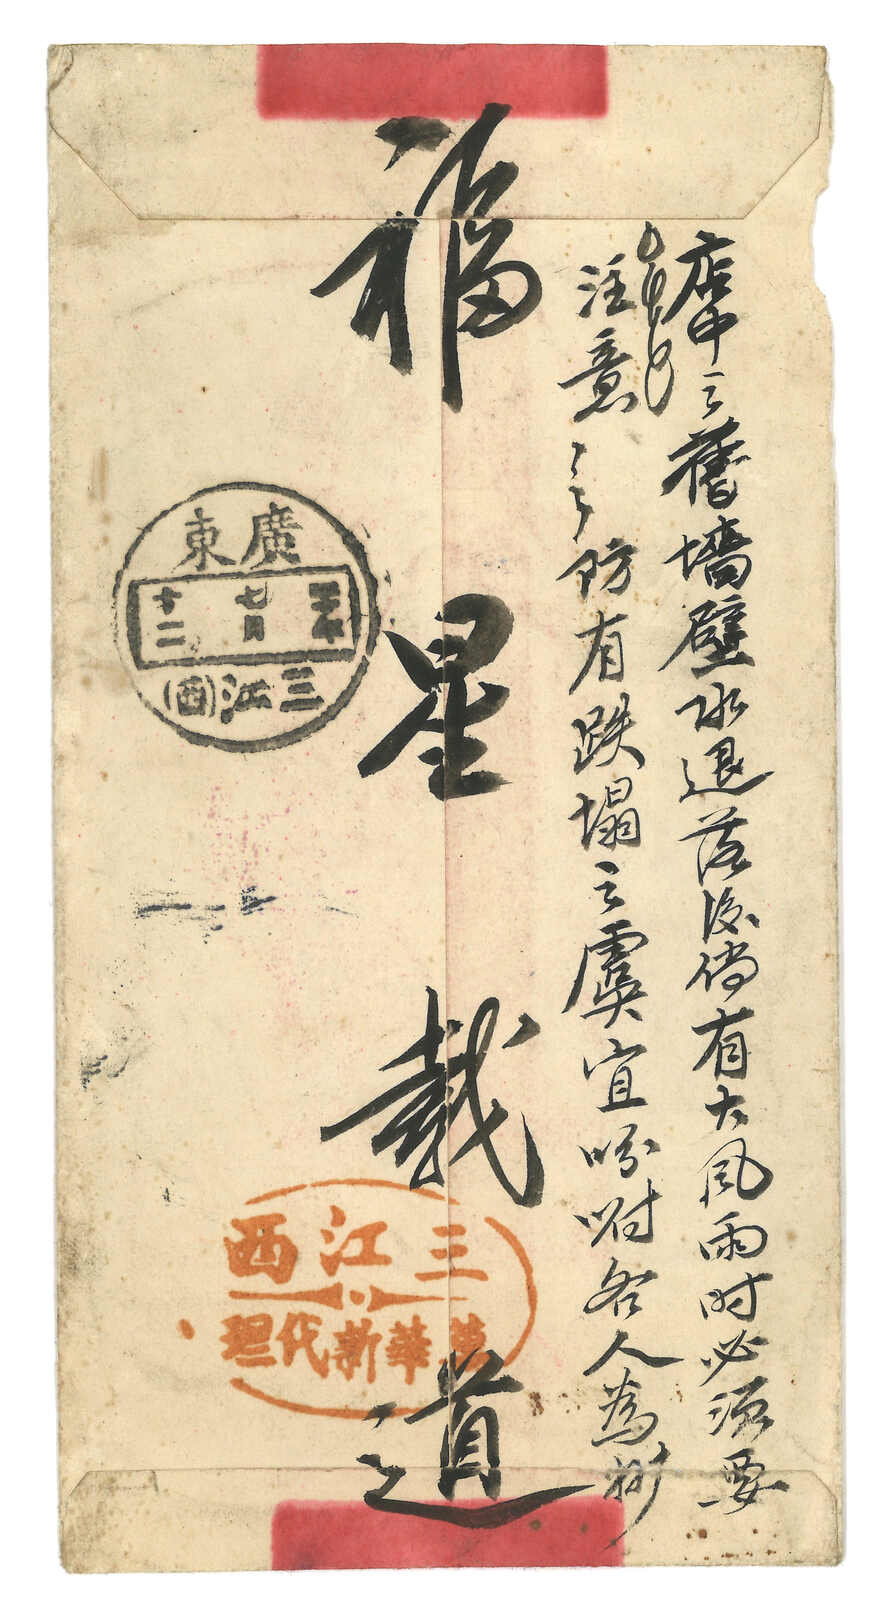 店中之舊墻壁水退落後倘有大風雨時必須要
注意之防有跌塌之虞宜吩咐各人為
福星載道
廣東
七月
十二
三江(西)
三江西
華新代理